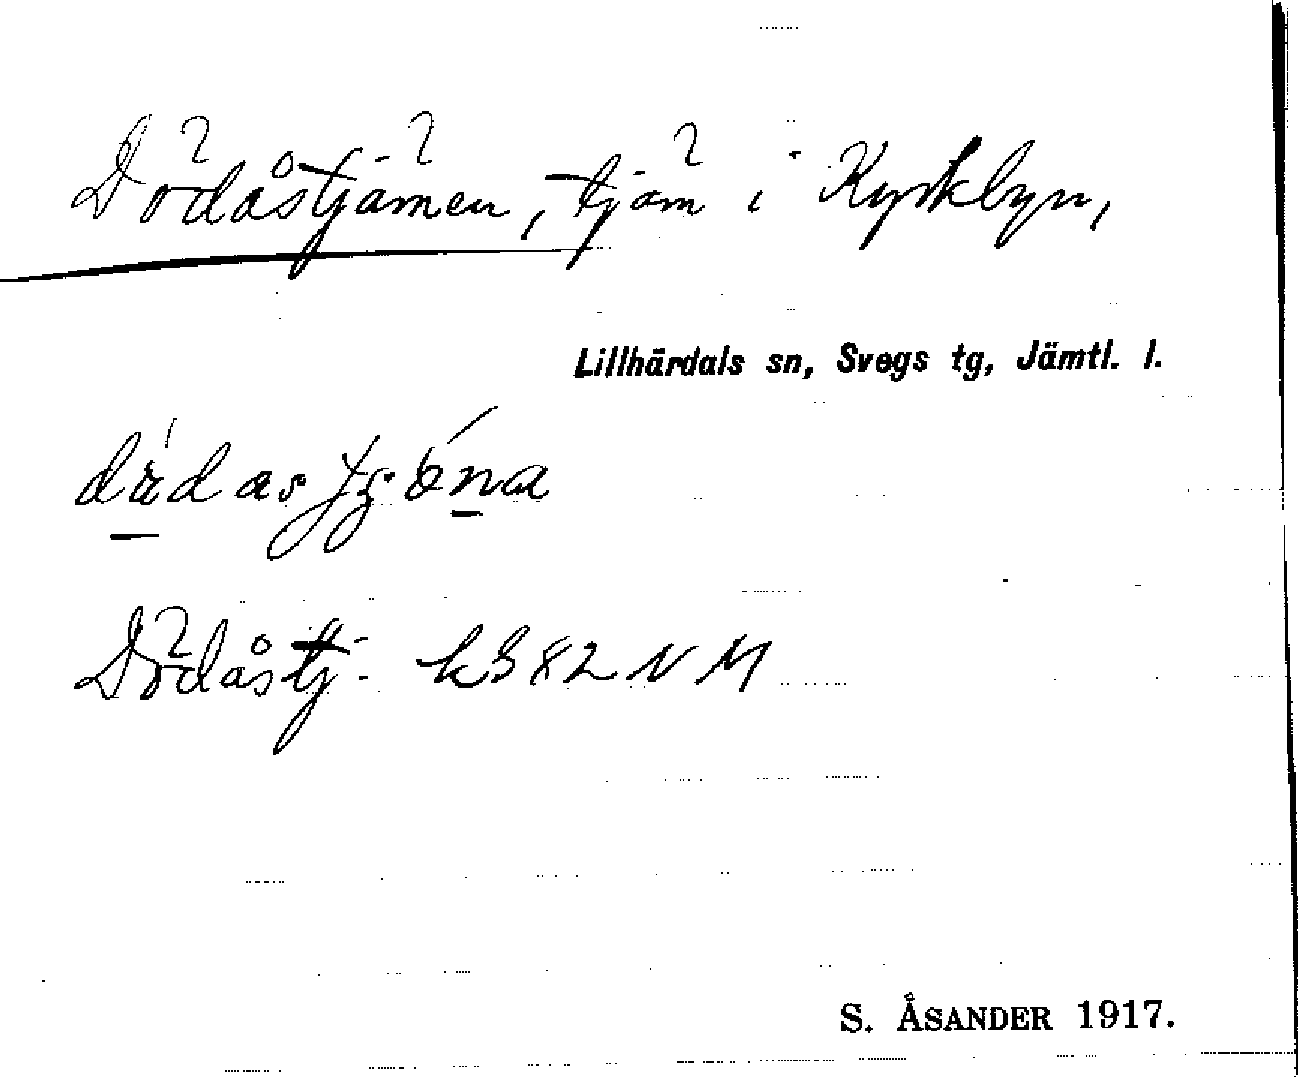 Dödåstjärnen, tjärn i Kyrkbyn,
Lillhärdals sn, Svegs tg, Jämtl. l.
Dödåstj. k 382 N M
S. ÅSANDER 1917.